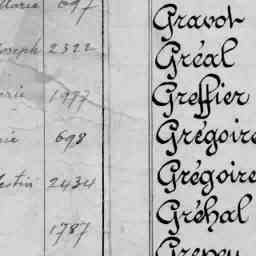 Marie 697 Gravot
Joseph 2322 Gréal
1977 Greffier
698 Grégoire
2434 Grégoire
1787 Gréhal